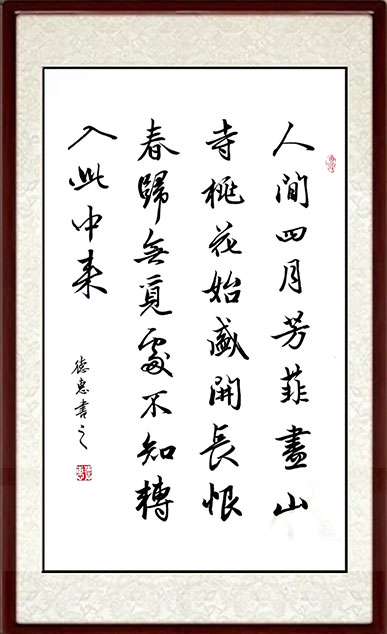 人間四月芳菲盡山
寺桃花始盛開長恨
春歸無覓處不知轉
入此中来
德惠書之